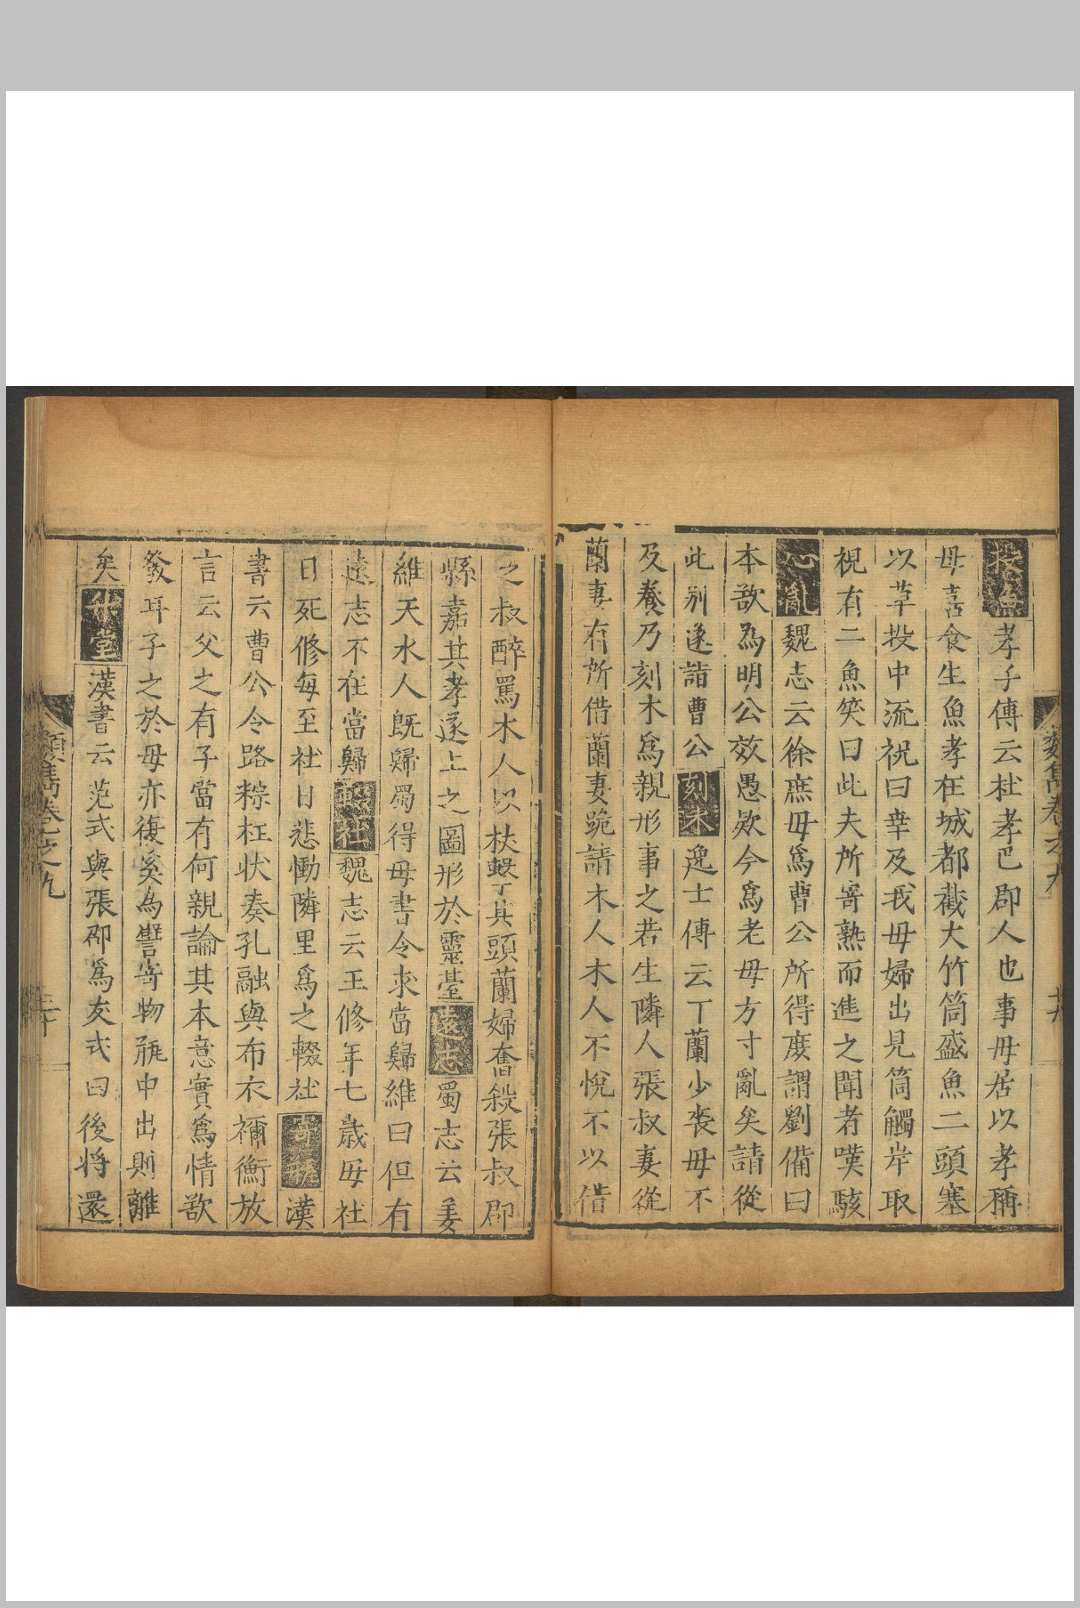 孝子傳云杜孝巴郡人也事母居以孝稱
母喜食生魚孝在城都截大竹筒盛魚二頭塞
以草投中流祝曰幸及我母婦出見筒觸岸取
視有二魚笑曰此夫所寄熟而進之聞者嘆駭
心亂魏志云徐庶母爲曹公所得庶謂劉備曰
本欲爲明公效愚欵今爲老母方寸亂矣請從
此别遂詣曹公刻木逸士傳云丁蘭少喪母不
及養乃刻木爲親形事之若生隣人張叔妻從
蘭妻有所借蘭妻跪請木人木人不悅不以借
之叔醉罵木人以杖擊其頭蘭婦奮殺張叔郡
縣嘉其孝遂上之圖形於靈臺遠志蜀志云姜
維天水人旣歸蜀得母書令求當歸維曰但有
遠志不在當歸輟社魏志云王修年七歲母社
日死修每至社日悲慟隣里爲之輟社寄瓶漢
書云曹公令路粽枉狀奏孔融與布衣禰衡放
言云父之有子當有何親論其本意實爲情欲
發耳子之於母亦復奚為譬寄物瓶中出則離
矣升堂漢書云范式與張邵爲友式曰後将還
類雋卷之九